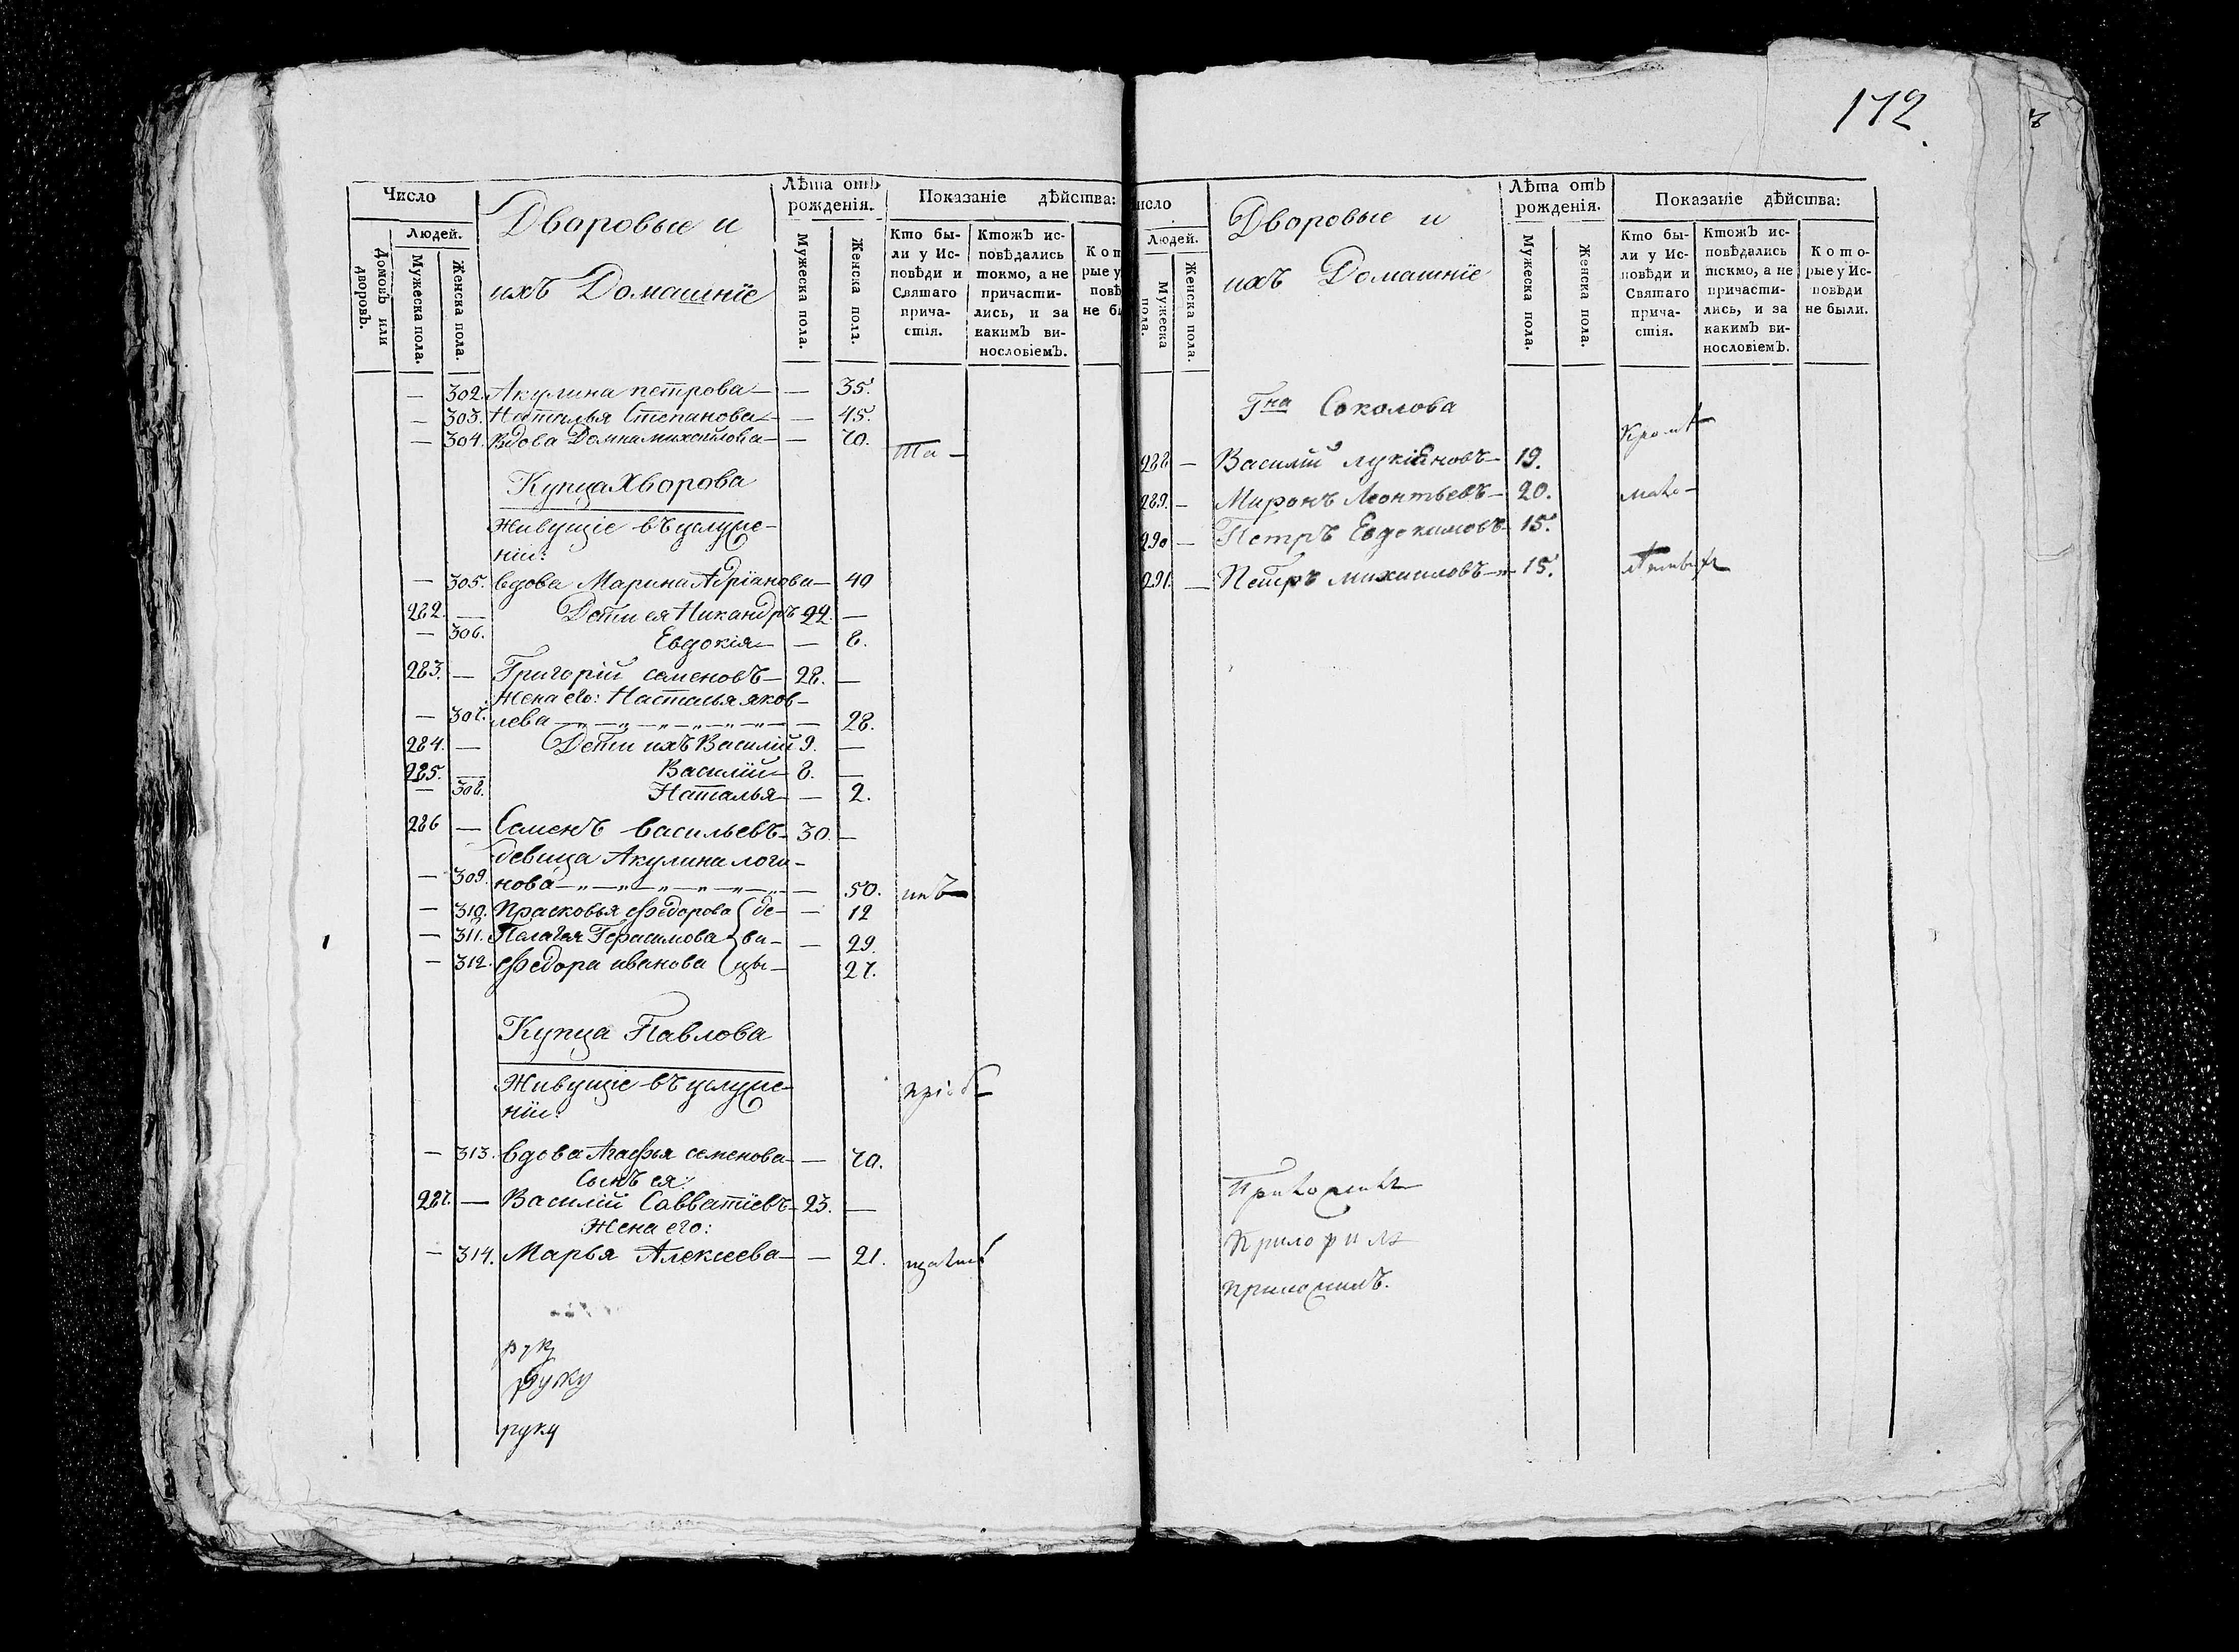 172
Число
Людей.
Домовъ или дворовъ.
Мужеска пола.
Женска пола.
Дворовые и
ихъ Домашніе
Лѣта отъ
рожденія.
Мужеска пола.
Женска пола.
Показаніе дѣйства:
Кто бы-
ли у Ис-
повѣди и
Святаго
прича-
стія.
Ктожъ ис-
повѣдались
токмо, а не
причасти-
лись, и за
какимъ ви-
нословіемъ.
Кот
рые у
повѣ
не бы
— 302. Акулина петрова — — 35.
— 303. Наталья Степанова — — 45.
— 304. Вдова Домна михайлова — — 70.
Та —
Купца Хворова
Живущіе въ услуже-
ніи:
— 305. вдова Марина Адріанова — 40
282. — Дети ея Никандръ 22. —
— 306. Евдокія — — 8.
283. — Григорій семеновъ — 28. —
Жена его: Наталья яков-
— 307. лева — — 28.
284. — Дети ихъ Василій 9. —
285. — Василій — 8. —
— 308. Наталья — — 2.
286 — Семенъ васильевъ — 30. —
девица Акулина логи-
— 309. нова — — 50.
— 310. Прасковья Федорова де- — 12
— 311. Пелагея Герасимова ви- — 29.
— 312. Федора иванова цы — 27.
Купца Павлова
Живущіе въ услуже-
ніи:
— 313. вдова Агафья семенова — — 70.
Сынъ ея:
287. — Василій Савватіевъ — 23. —
Жена его:
— 314. Марья Алексеева — — 21.
руку
руку
исло
Людей.
Мужеска пола.
Женска пола.
Дворовые и
ихъ Домашніе
Лѣта отъ
рожденія.
Мужеска пола.
Женска пола.
Показаніе дѣйства:
Кто бы-
ли у Ис-
повѣди и
Святаго
прича-
стія.
Ктожъ ис-
повѣдались
токмо, а не
причасти-
лись, и за
какимъ ви-
нословіемъ.
Кото-
рые у Ис-
повѣди
не были.
Гна Соколова
288 — Василій лукіяновъ — 19.
289. — Миронъ Леонтьевъ — 20.
290 — Петръ Евдокимовъ 15.
291. — Петръ михаиловъ — 15.